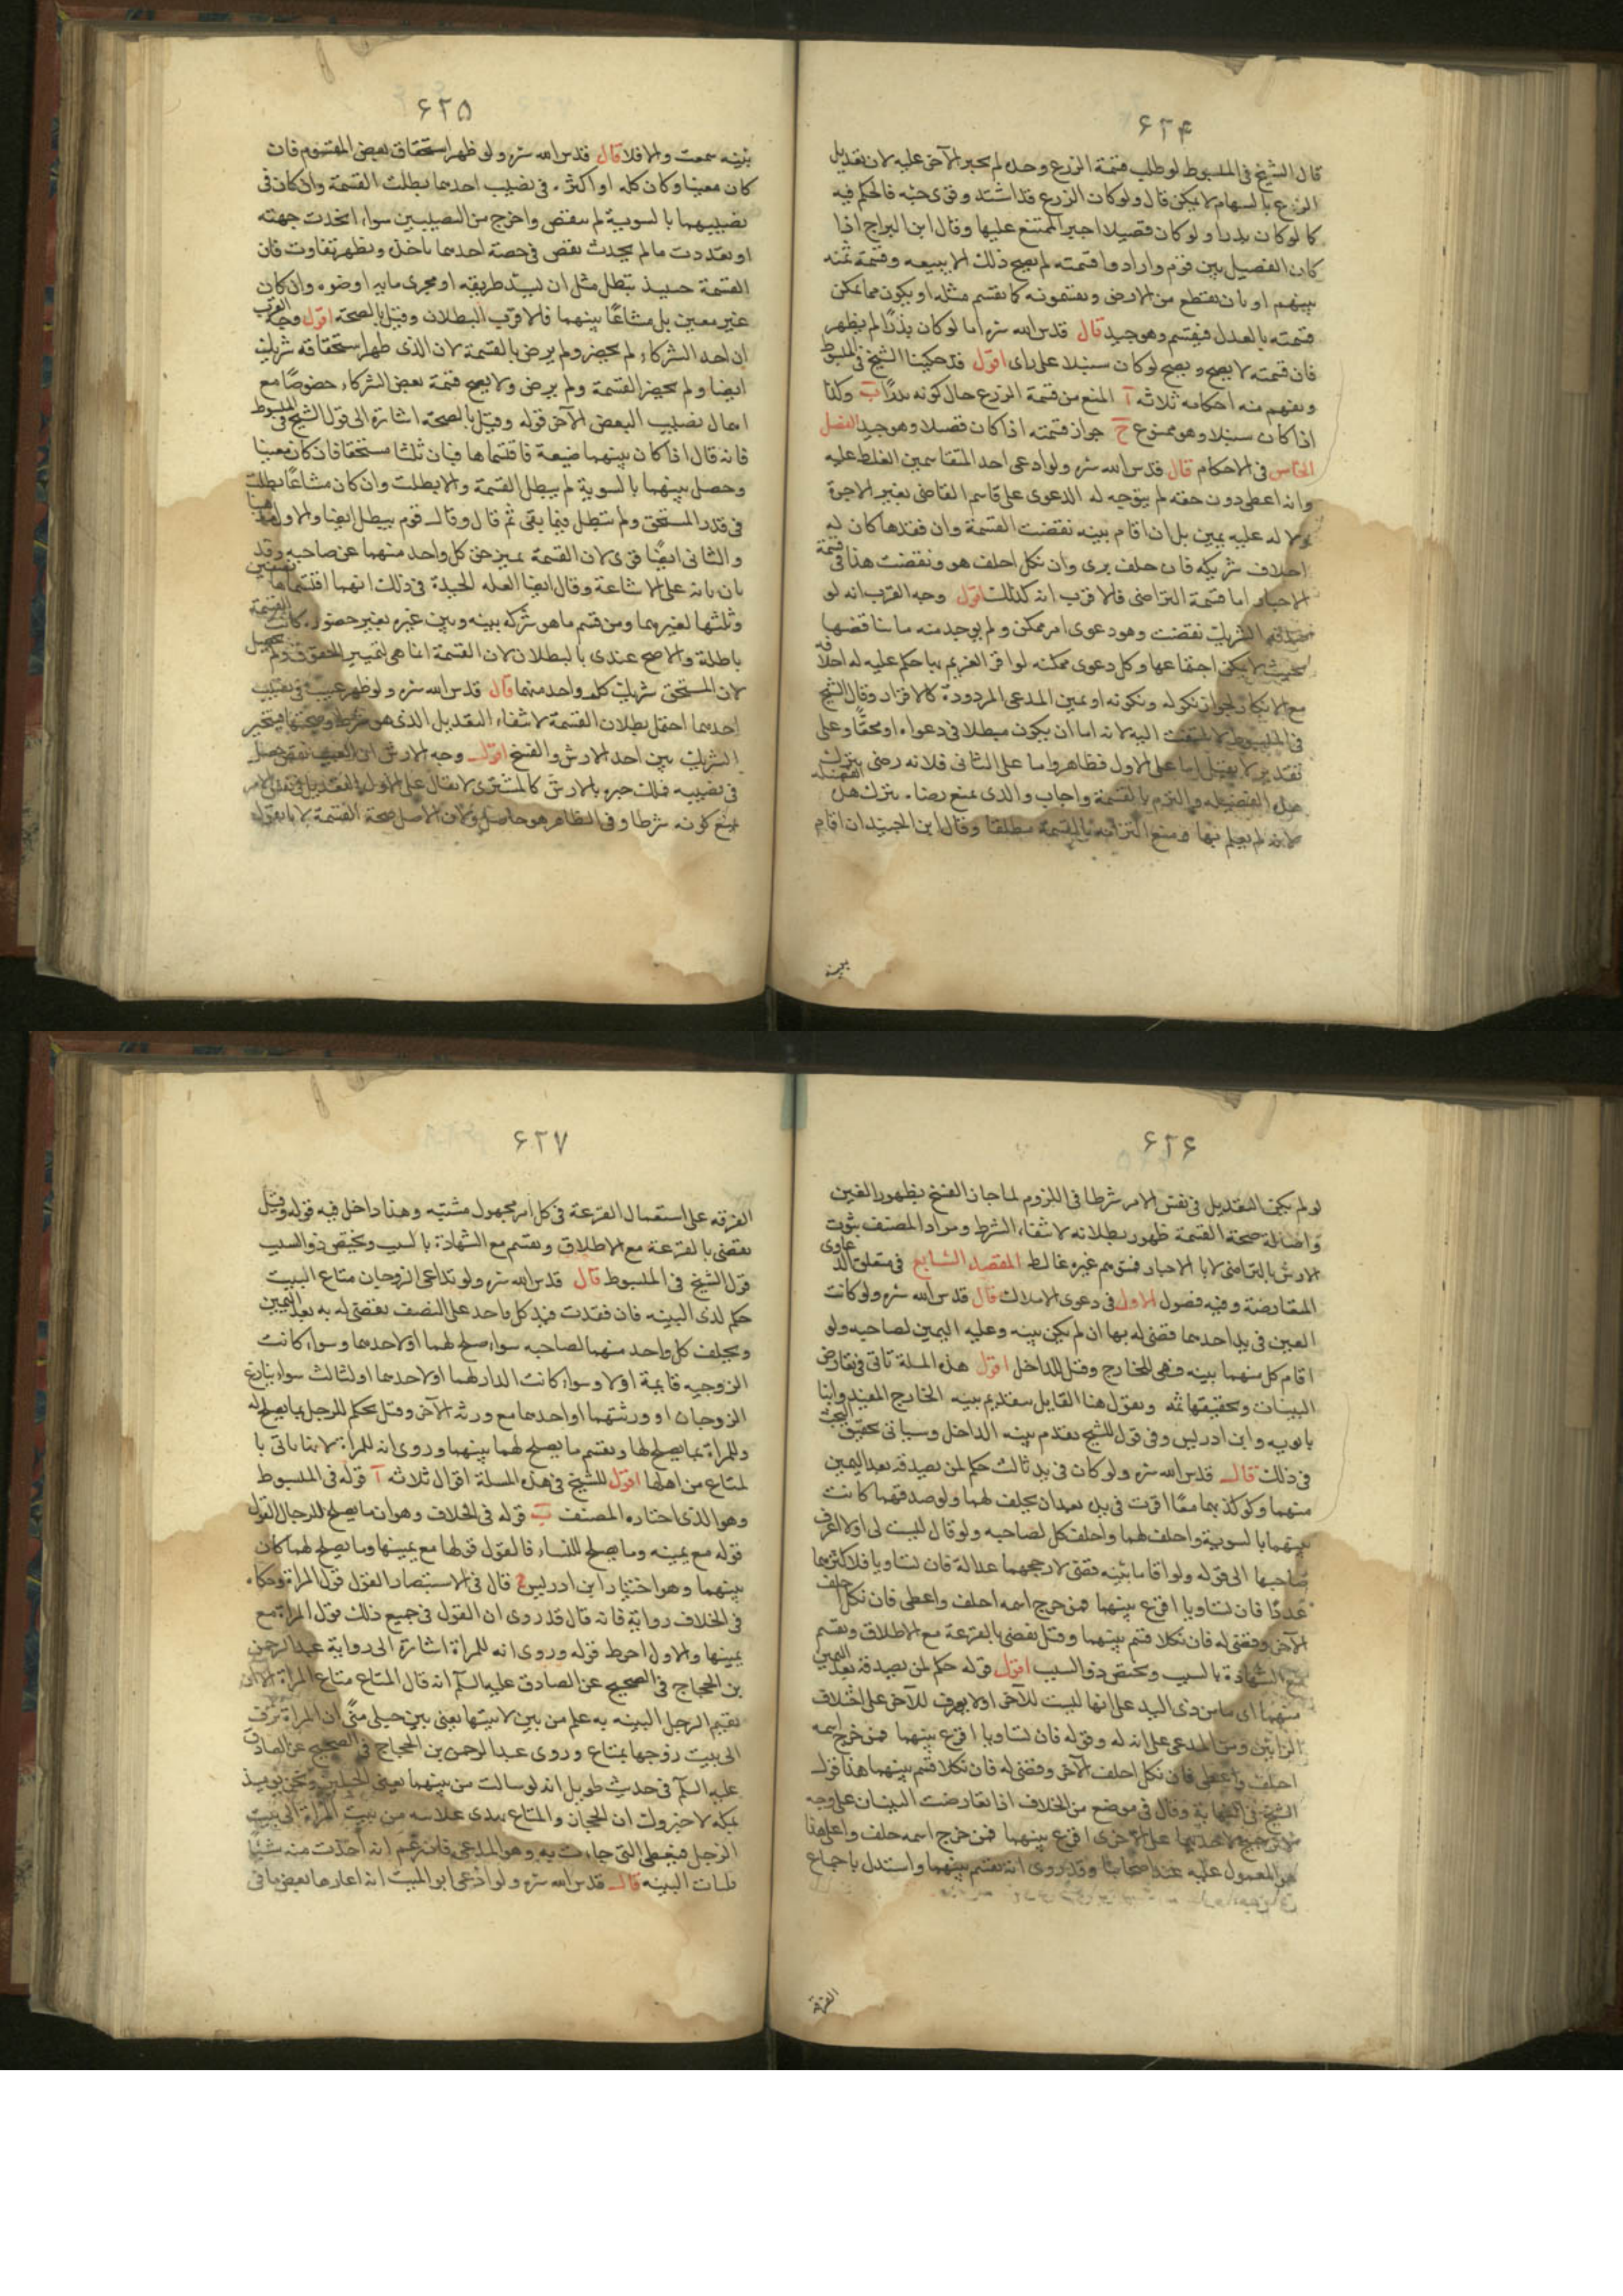 ۶۲۴
قال الشيخ فى المبسوط لو طلب قسمة الزرع وحده لم يجبر الآخر عليه لان تعديل
الزرع بالسهام لا يمكن قال ولو كان الزرع قد اشتد وقوى حبه فالحكم فيه
كما لو كان بذرا ولو كان قصيلا اجبر الممتنع عليها وقال ابن البراج اذا
كان الفصيل بين قوم وارادوا قسمته لم يصح ذلك الا ببيعه وقسمة ثمنه
بينهم او بان يقطع من الارض ويقتسمونه كما يقسم مثله او يكون مما يمكن
قسمته بالعدل فيقسم وهو جيد قال قدس الله سره اما لو كان بذرًا لم يظهر
فان قسمته لا يصح ويصح لو كان سنبلا على راى اقول قد حكينا الشيخ فى المبسوط
ويفهم منه احكامه ثلاثه آ المنع من قسمة الزرع حال كونه بذرًا ب وكذا
اذا كان سنبلا وهو ممنوع ح جواز قسمته اذا كان قصيلا وهو جيد الفصل
الخامس فى الاحكام قال قدس الله سره ولو ادعى احد المتقاسمين الغلط عليه
وانه اعطى دون حقه لم يتوجه له الدعوى على قاسم القاضى بغير الاجرة
ولا له عليه يمين بل ان اقام بينه نقضت القسمة وان فقدها كان له
احلاف شريكه فان حلف برى وان نكل احلف هو ونقضت هذا فى قسمة
الاجبار اما قسمة التراضى فالاقرب انه كذلك اقول وجه القرب انه لو
صدقه الشريك نقضت وهو دعوى امر ممكن ولم يوجد منه ما يناقضها
بحيث لا يمكن اجتماعها وكل دعوى ممكنه لو اقر الغريم بها حكم عليه له احلافه
مع الانكار لجواز نكوله ونكونه او يمين المدعى المردودة كالاقرار وقال الشيخ
فى المبسوط لا يلتفت اليه لانه اما ان يكون مبطلا فى دعواه او محقًا وعلى
تقدير لا يقبل اما على الاول فظاهر واما على الثانى فلانه رضى بترك
هذه الفضيله والتزم بالقسمة واجاب والدى بمنع رضاه بترك هذه الفضيله
لانه لم يعلم بها ومنع التزامه بالقسمة مطلقا وقال ابن الجنيد ان اقام
بينه
۶۲۵
بينه سمعت والا فلا قال قدس الله سره ولو ظهر استحقاق بعض المقسوم فان
كان معينا وكان كله او اكثره فى نصيب احدهما بطلت القسمة وان كان فى
نصيبيهما بالسوية لم ينقض واخرج من النصيبين سواء اتحدت جهته
او تعددت ما لم يحدث نقص فى حصة احدهما باخذه ويظهر تفاوت فان
القسمة حينئذ تبطل مثل ان يسد طريقه او مجرى مايه او ضوءه وان كان
غير معين بل مشاعًا بينهما فالاقرب البطلان وقيل بالصحة اقول وجه القرب
ان احد الشركاء لم يحضر ولم يرض بالقسمة لان الذى ظهر استحقاقه شريك
ايضا ولم يحضر القسمة ولم يرض ولا يصح قسمة بعض الشركاء خصوصًا مع
اهمال نصيب البعض الآخر قوله وقيل بالصحة اشارة الى قول الشيخ فى المبسوط
فانه قال اذا كان بينهما ضيعة فاقتسماها فبان ثلث مستحقا فان كان معينا
وحصل بينهما بالسوية لم يبطل القسمة والا بطلت وان كان مشاعًا بطلت
فى قدر المستحق ولم تبطل فيما بقى ثم قال وقال قوم يبطل ايضا والاول مذهبنا
والثانى ايضًا قوى لان القسمة تميز حق كل واحد منهما عن صاحبه وقد
بان بانه على الاشاعة وقال ايضا العله الجيدة فى ذلك انهما اقتسماها نصفين
وثلثها لغيرهما ومن قسم ما هو شركه بينه وبين غيره بغير حضوره كانت القسمة
باطلة والاصح عندى بالبطلان لان القسمة انما هى لتمييز الحقوق ولم يحصل
لان المستحق شريك كل واحد منهما قال قدس الله سره ولو ظهر عيب فى نصيب
احدهما احتمل بطلان القسمة لانتفاء التعديل الذى هو شرط وصحتها فيتخير
الشريك بين اخذ الارش والفسخ اقول وجه الارش ان العيب نقص حصل
فى نصيبه فملك جبره بالارش كالمشترى لا يقال على الاول التعديل فى نفس الامر
يمنع كونه شرطا وفى الظاهر هو حاصل ولان الاصل صحة القسمة لانا نقول
۶۲۶
لو لم يكن التعديل فى نفس الامر شرطا فى اللزوم لما جاز الفسخ بظهور الغبن
واصالة صحة القسمة ظهور بطلانه لانتفاء الشرط ومراد المصنف بثوت
الارش بالتراضى لا بالاجبار فتوهم غيره غالط المقصد السابع فى متعلق الدعاوى
المتعارضة وفيه فصول الاول فى دعوى الاملاك قال قدس الله سره ولو كانت
العين فى يد احدهما قضى له بها ان لم يكن بينه وعليه اليمين لصاحبه ولو
اقام كل منهما بينه فهى للخارج وقيل للداخل اقول هذه المسلة تاتى فى تعارض
البينات وتحقيقها ثمه ونقول هنا القايل بتقديم بينه الخارج المفيد وابنا
بابويه وابن ادريس وفى قول للشيخ تقدم بينه الداخل وسياتى تحقيق البحث
فى ذلك قال قدس الله سره ولو كان فى يد ثالث حكم لمن يصدقه بعد اليمين
منهما ولو كذبهما معًا اقرت فى يده بعد ان يحلف لهما ولو صدقهما كانت
بينهما بالسوية واحلف لهما واحلف كل لصاحبه ولو قال ليست لى او لا اعرف
صاحبها الى قوله ولو اقاما بينه قضى لارجحهما عدالة فان تساويا فلاكثرهما
عددًا فان تساويا اقرع بينهما فمن خرج اسمه احلف واعطى فان نكل حلف
الآخر وقضى له فان نكلا قسم بينهما وقيل يقضى بالقرعة مع الاطلاق ويقسم
مع الشهادة بالسبب ويختص ذو السبب اقول قوله حكم لمن يصدقه بعد اليمين
منهما اى من ذى اليد على انها ليست للآخر او لا يعرف للآخر على اختلاف
الرايين ومن المدعى على انه له وقوله فان تساويا اقرع بينهما فمن خرج اسمه
احلف واعطى فان نكل احلف الآخر وقضى له فان نكلا قسم بينهما هذا قول
الشيخ فى النهاية وقال فى موضع من الخلاف اذا تعارضت البينتان على وجه
لا ترجيح لاحديهما على الاخرى اقرع بينهما فمن خرج اسمه حلف واعطى هذا
هو المعمول عليه عند اصحابنا وقد روى انه يقسم بينهما واستدل باجماع
الفرقة
۶۲۷
الفرقه على استعمال القرعة فى كل امر مجهول مشتبه وهذا داخل فيه قوله وقيل
يقضى بالقرعة مع الاطلاق ويقسم مع الشهادة بالسبب ويختص ذو السبب
قول الشيخ فى المبسوط قال قدس الله سره ولو تداعى الزوجان متاع البيت
حكم لذى البينه فان فقدت فيد كل واحد على النصف يقضى له به بعد اليمين
ويحلف كل واحد منهما لصاحبه سواء صلح لهما او لاحدهما وسواء كانت
الزوجيه قايمة او لا وسواء كانت الدار لهما او لاحدهما او لثالث سواء تنازع
الزوجان او ورثتهما او احدهما مع ورثه الآخر وقيل يحكم للرجل بما يصلح له
وللمراة بما يصلح لها ويقسم ما يصلح لهما بينهما وروى انه للمراة لانها تاتى با
لمتاع من اهلها اقول للشيخ فى هذه المسلة اقوال ثلاثه آ قوله فى المبسوط
وهو الذى اختاره المصنف ب قوله فى الخلاف وهو ان ما يصلح للرجال القول
قوله مع يمينه وما يصلح للنساء فالقول قولها مع يمينها وما يصلح لهما كان
بينهما وهو اختيار ابن ادريس ج قال فى الاستبصار القول قول المراة وحكاه
فى الخلاف رواية فانه قال قد روى ان القول فى جميع ذلك قول المراة مع
يمينها والاول احوط قوله وروى انه للمراة اشارة الى رواية عبد الرحمن
بن الحجاج فى الصحيح عن الصادق عليه السلم انه قال المتاع متاع المراة الا ان
يقيم الرجل البينه به علم من بين لابتيها يعنى بين جبلى منى ان المراة تزف
الى بيت زوجها بمتاع وروى عبد الرحمن بن الحجاج فى الصحيح عن الصادق
عليه السلم فى حديث طويل انه لو سالت من بينهما يعنى الجبلين ونحن يومئذ
بمكه لاخبروك ان الجهاز والمتاع يهدى علانيه من بيت المراة الى بيت
الرجل فيعطى التى جاءت به وهو المدعى فان زعم انه احدث منه شيئًا
فليات البينه قال قدس الله سره ولو ادعى ابو الميت انه اعارها بعض ما فى